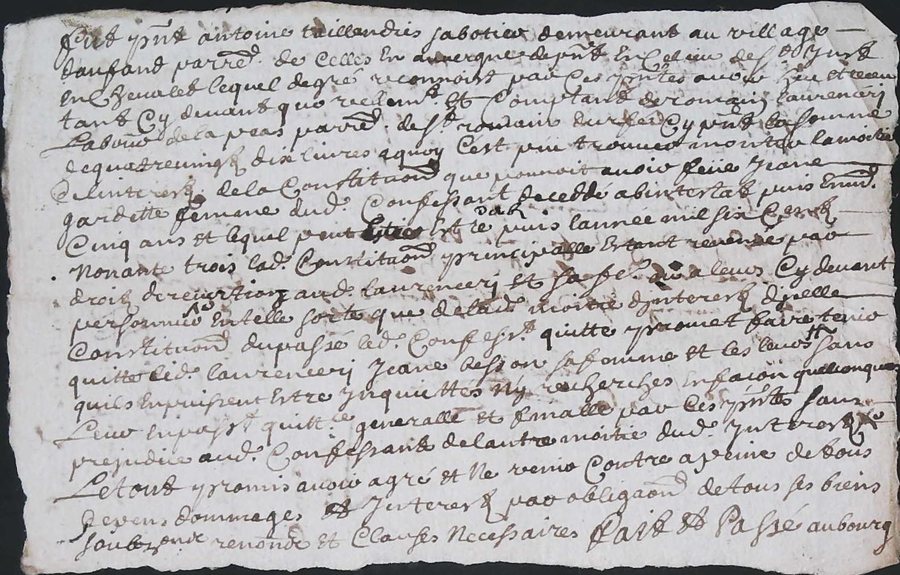 fut pnt antoine taillendies sabotier demeurant au village
danfand parred. de Celles En auvergne de pnt En Celieu de st Just
En Chevalet lequel de gré reconnoist par Ces pntes avoir heu et receu
tant Cy devant que rechem.t et Comptant de romain laurenceri
Labour de la peas parred. de st. romain durfé Cy pnt la somme
de quatre vingt dix livres a quoy C'est peu trouver monter la moitié
dinterest de la Constituaon. que pouvoit avoir feue Jeane
gardette femme dud. Confessant decedée abintestat puis
Cinq ans et lequel peut Est de puis lannee mil six Cent
Nonante trois lad. Constituaon. principalle Estant revenue par
droit de reversion aud. laurenceri et sa fe. aux leurs Cy devant
personnier En telle sorte que de lad. moitié dinterest dycelle
Constituaon. du passé led. Confess.t quitte promet faire tenir
quitte led. laurenceri Jeane besson sa femme et les leurs sans
quils En puissent Estre Inquiettés Ny recherches En facon quelconque
Leur En pass.t quitt.e generalle et finalle par Ces pntes sans
prejudice aud. Confessant de lautre moitié dud. Interest
Le tout promis avoir agré et Ne venir Contre a peine de tous
despens dommages et Interest par obligaon. de tous ses biens
renond et Clauses Necessaires fait Et Passé au bourg